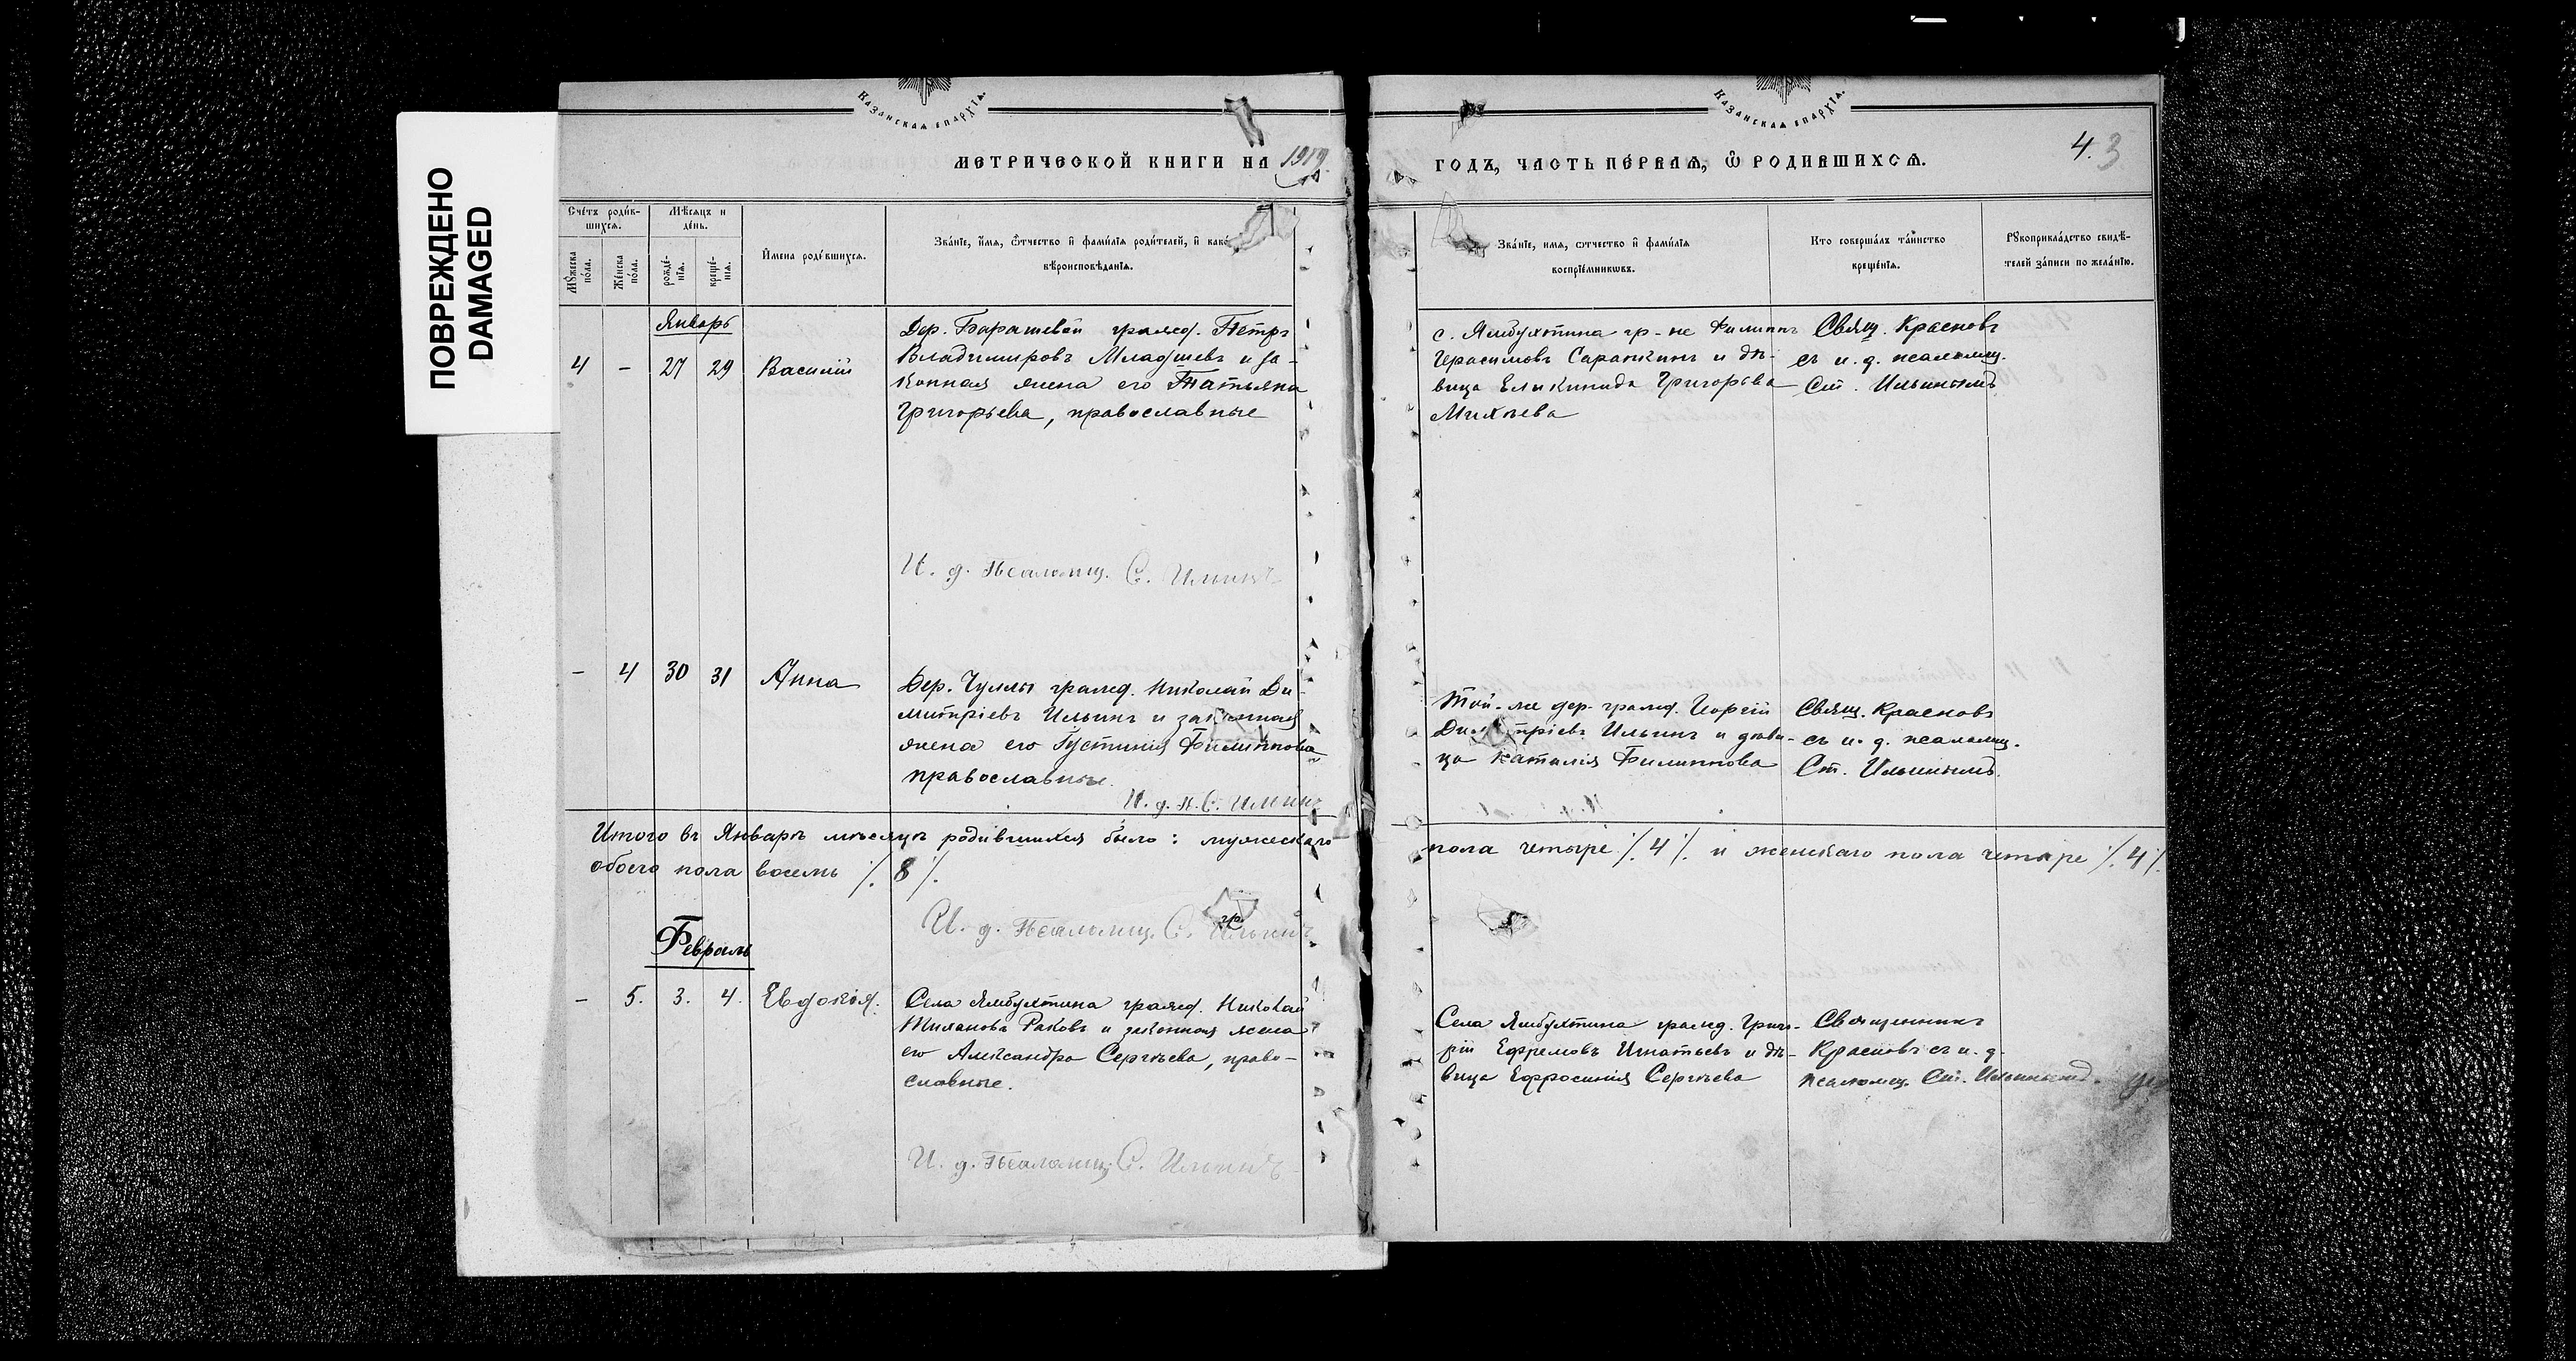 ПОВРЕЖДЕНО
DAMAGED
Казанская епархїя.
Казанская епархїя.
МЕТРИЧЕСКОЙ КНИГИ НА 1919
ГОДЪ, ЧАСТЬ ПЕ́РВАЯ, Ѿ РОДИВШИХСЯ.
4. 3
Сче́тъ роди́в-
шихся.
Мѣсяцъ и
де́нь.
Мꙋ́жеска
по́ла.
Же́нска
по́ла.
рожде́-
нїя.
креще́-
нїя.
И́мена роди́вшихся.
Зва́нїе, и́мя, ѻ́тчество и҆ фами́лїя роди́телей, и҆ како́
вѣроисповѣ́данїя.
Зва́нїе, имя, ѻтчество и҆ фами́лїя
воспрїе́мникѡвъ.
Кто соверша́лъ та́инство
креще́нїя.
Рꙋкоприкла́дство свидѣ́-
телей за́писи по жела́нїю.
Январь
4 - 27 29 Василій
Дер. Барашевой гражд. Петръ
Владимировъ Младшевъ и за-
конная жена его Татьяна
Григорьева, православные
с. Ямбухтина гр-не Филиппъ
Герасимовъ Саранкинъ и дѣ-
вица Еликинида Григорьева
Михѣева
Свящ. Красновъ
съ и. д. псаломщ.
Ст. Ильинымъ
И. д. Псаломщ. С. Ильинъ
- 4 30 31 Анна
Дер. Чуллы гражд. Николай Ди-
митріевъ Ильинъ и законная
жена его Густинія Филиппова
православные.
И. д. п. С. Ильинъ
Той-же дер. гражд. Георгій
Димитріевъ Ильинъ и дѣви-
ца Наталія Филиппова
Свящ. Красновъ
съ и. д. псаломщ.
Ст. Ильинымъ.
Итого въ Январѣ мѣсяцѣ родившихся было: мужескаго
пола четыре /. 4 /. и женскаго пола четыре /. 4 /.
обоего пола восемь /. 8 /.
И. д. Псаломщ. С. Ильинъ
Февраль
- 5. 3. 4. Евдокія.
Села Ямбухтина гражд. Николай
Раковъ и законная жена
его Александра Сергѣева, право-
славные.
Села Ямбухтина гражд. Григо-
рій Ефремовъ Игнатьевъ и дѣ-
вица Ефросинія Сергѣева
Священникъ
Красновъ съ и. д.
псаломщ. Ст. Ильинымъ.
И. д. Псаломщ. С. Ильинъ